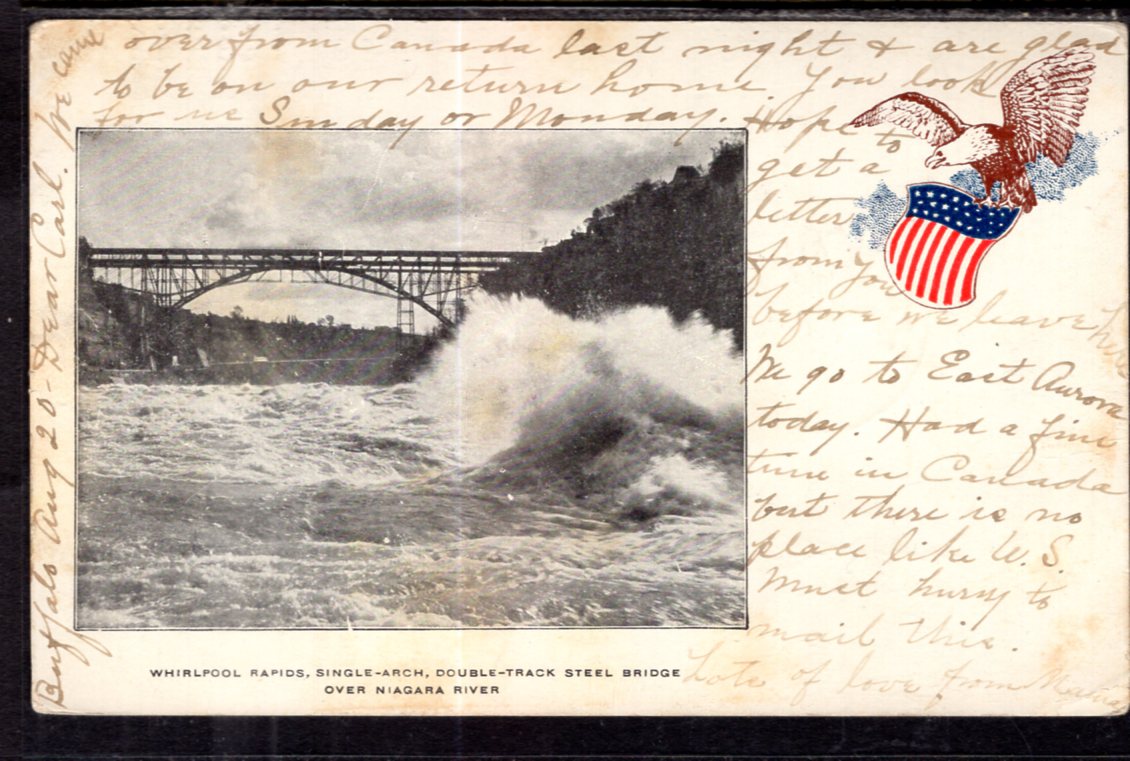 Buffalo Aug 20 - Dear Carl. We came
over from Canada last night & are glad
to be on our return home. You look
for us Sunday or Monday. Hope to
get a
letter
from you
before we leave here
We go to East Aurora
today. Had a fine
time in Canada
but there is no
place like U.S.
Must hurry to
mail this.
Lots of love from Mama
WHIRLPOOL RAPIDS, SINGLE-ARCH, DOUBLE-TRACK STEEL BRIDGE
OVER NIAGARA RIVER